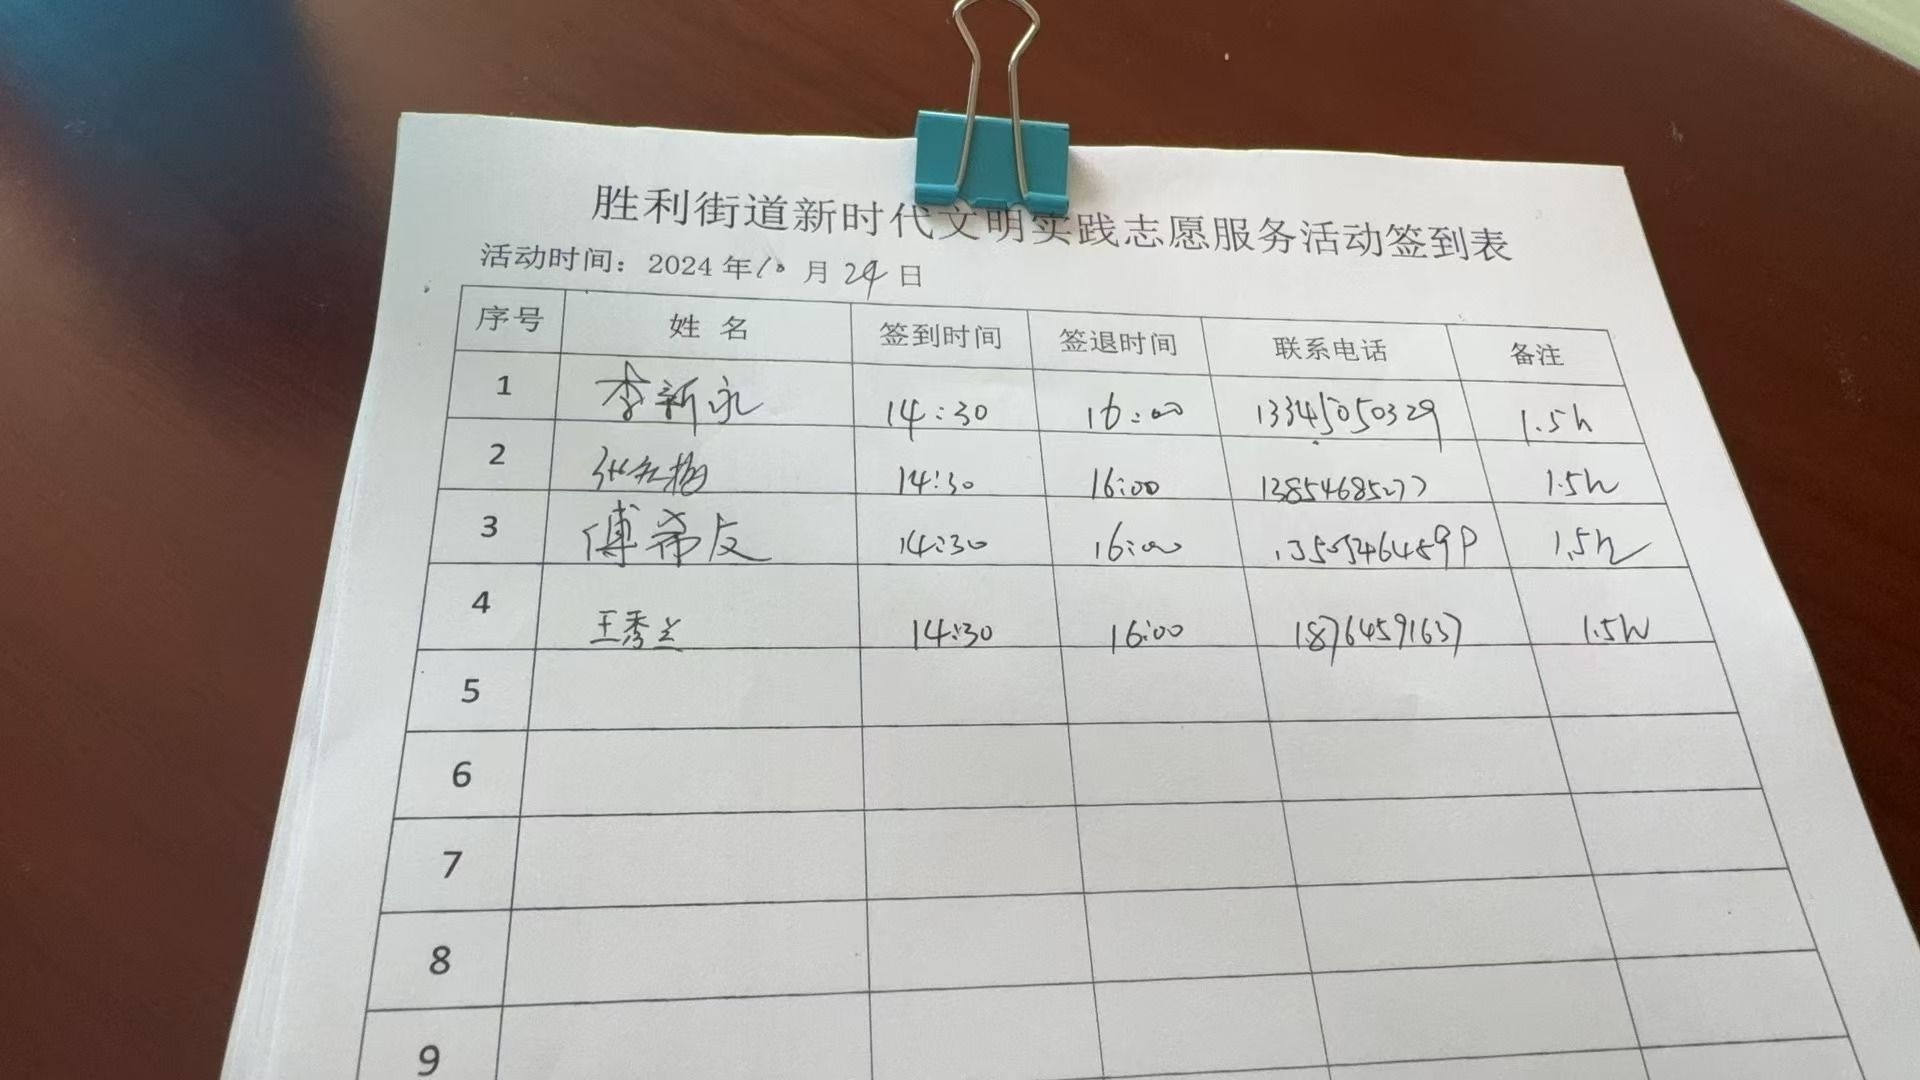 胜利街道新时代文明实践志愿服务活动签到表
活动时间：2024年10月24日
序号 姓 名 签到时间 签退时间 联系电话 备注
1 李新永 14:30 16:00 13345050329 1.5h
2 14:30 16:00 13854685277 1.5h
3 傅希友 14:30 16:00 1.5h
4 王秀兰 14:30 16:00 18764591637 1.5h
5
6
7
8
9